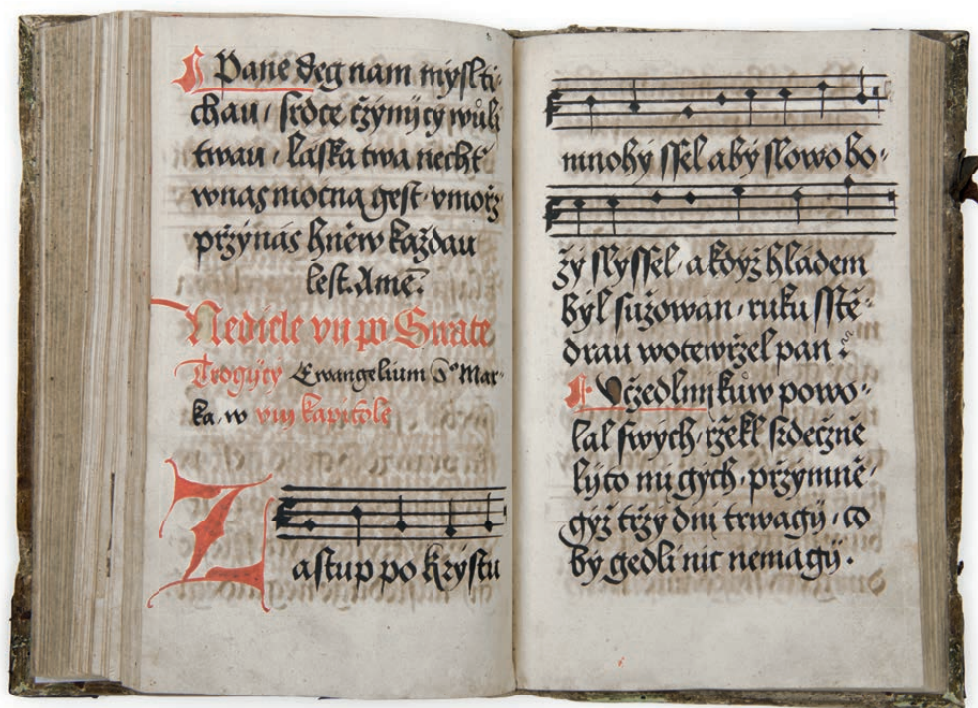 Pane deg nam mysliti-
chau, srdce czyniycy wuli
twau, laska twa necht
wnas mocna gest, vmorz
przynas hniew każdau
lest. Amē.
Nediele vij po Swate
Trogijcy Ewangelium S° Mar-
ka, w viij kapitole
Zastup po krystu
mnohy ssel aby slowo bo-
žy slyssel, a kdyz hladem
byl sužowan, ruku sstě-
drau wotewrzel pan :
Včzedlnikuw powo-
lal swych, rzekl srdeczně
lijto mi gich, przymně,
gijž trzy dni trwagij, co
by gedli nic nemagij.